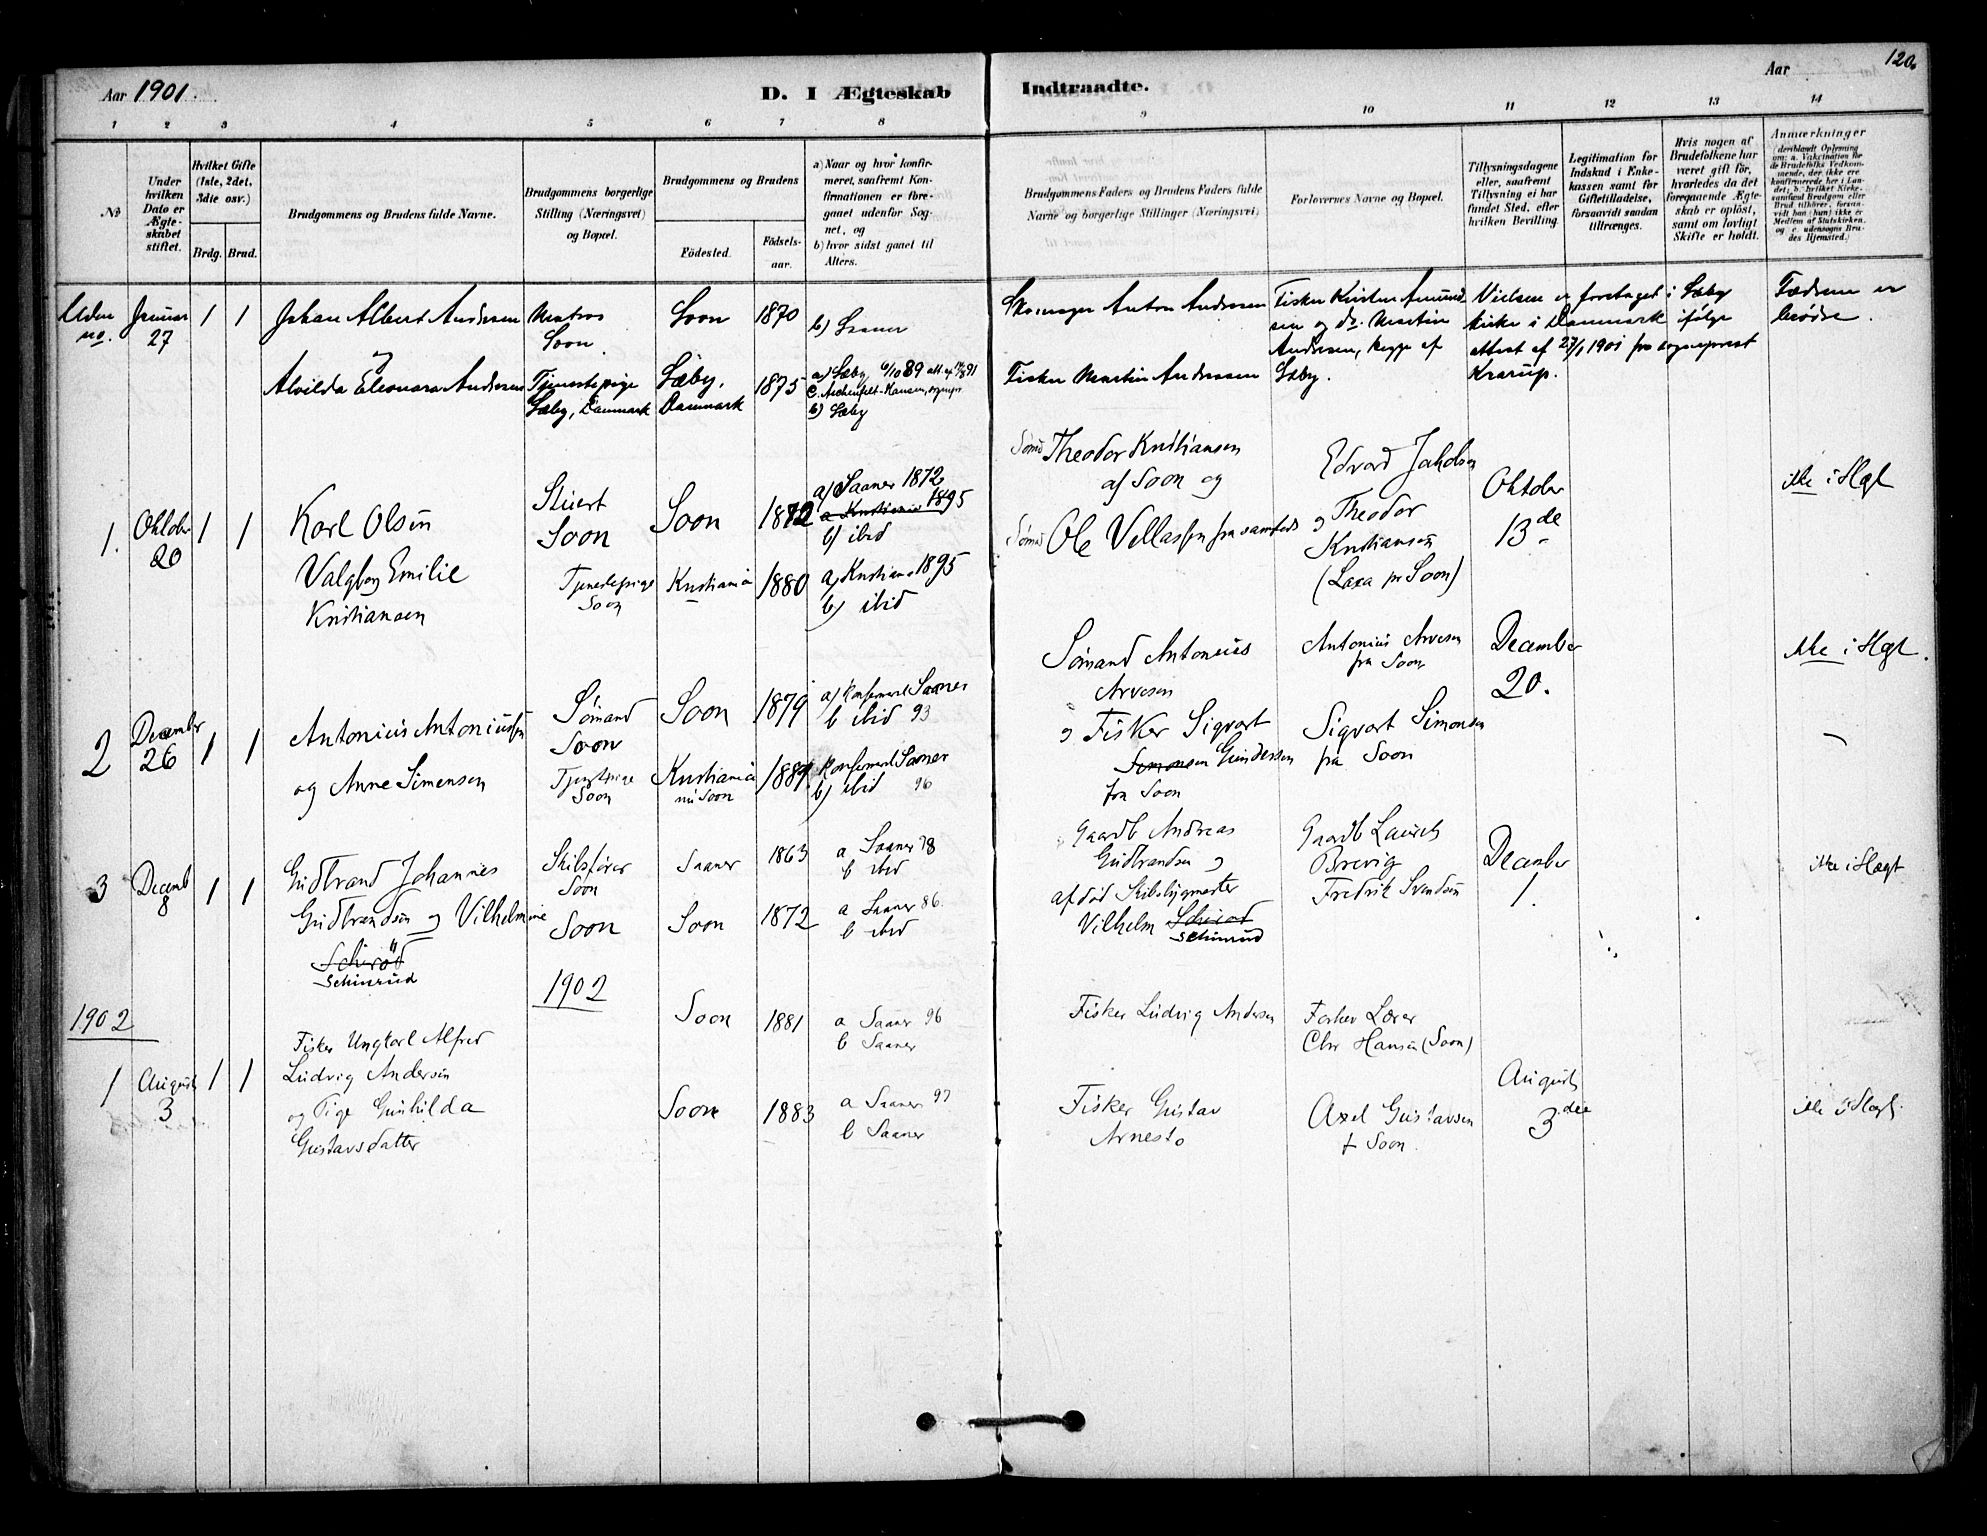 Aar 1901.
D. I Ægteskab
Indtraadte.
Aar
120.
1 2 3 4 5 6 7 8 9 10 11 12 13 14
No
Under hvilken Dato er Ægteskabet stiftet.
Hvilket Gifte (1ste, 2det, 3die osv.)
Brdg. Brud.
Brudgommens og Brudens fulde Navne.
Brudgommens borgerlige Stilling (Næringsvei) og Bopæl.
Brudgommens og Brudens
Födested.
Födsels-aar.
a) Naar og hvor konfirmeret, saafremt Konfirmationen er foregaaet udenfor Sognet, og
b) hvor sidst gaaet til Alters.
Brudgommens Faders og Brudens Faders fulde Navne og borgerlige Stillinger (Næringsvei)
Forlovernes Navne og Bopæl.
Tillysningsdagene eller, saafremt Tillysning ei har fundet Sted, efter hvilken Bevilling.
Legitimation for Indskud i Enkekassen samt for Giftetilladelse, forsaavidt saadan tiltrænges.
Hvis nogen af Brudefolkene har været gift för, hvorledes da det foregaaende Ægteskab er oplöst, samt om lovligt Skifte er holdt.
Anmærkninger (deriblandt Oplysning om: a. Vakcination for de Brudefolks Vedkommende, der ikke ere konfirmerede her i Landet; b. hvilket Kirkesamfund Brudgom eller Brud tilhörer, forsaavidt han (hun) ikke er Medlem af Statskirken, og c. udensogns Brudes Hjemsted.)
Uden no.
Januar 27
1 1
Johan Albert Andersen
og
Alvilda Eleonora Andersen
Matros Soon.
Tjenestepige Sæby, Danmark
Soon
Sæby, Danmark
1870
1875
b) Saaner
a) Sæby 6/10 89
b) Sæby
Skomager Anton Andersen
Fisker Martin Andersen
Fisker Kristen Amundsen og do. Martin Andersen, begge af Sæby.
Vielsen er foretaget i Sæby kirke i Danmark ifølge attest af 27/1 1901 fra sogneprest Krarup.
Fædrene er brødre.
1.
Oktober 20
1 1
Karl Olsen
Valgborg Emilie
Kristiansen
Stuert
Soon
Tjenestepige
Soon
Soon
Kristiania
1872
1880
a) Saaner 1872
a Kristiania 1895
b) ibid
a) Kristiania 1895
b) ibid
Sømd Theodor Kristiansen
af Soon og
Sømd Ole fra samsteds
Edvard
og Theodor
Kristiansen
(Laxa pr Soon)
Oktober
13de
ikke i Slgt
2
December
26
1 1
Antonius
og Anne Simensen
Sømand
Soon
Tjenstpige
Soon
Soon
Kristiania
nu Soon
1879
a) konfirmert Saaner
b ibid 93
konfirmert Saaner
b) ibid 96
Sømand Antonius
Arvesen
og Fisker Sigvart
Simonsen Gundersen
fra Soon
Antonius Arvesen
fra Soon
Sigvart Simonsen
fra Soon
December
20.
ikke i Slgt.
3
Decemb
8
1 1
Gudbrand Johannes
Gudbrandsen og Vilhelmine
Schirød
Schinrud
Skibsfører
Soon
Soon
Saaner
Soon
1863
1872
a Saaner 78
b ibid
a Saaner 86.
b ibid
Gaardb Andreas
Gudbrandsen og
afdød Skibsbygmester
Vilhelm
Schinrud
Gaardb Laurits
Brevig
Fredrik Svendsen
December
1.
ikke i Slægt
1902
1902
1
August
3
1 1
Fisker Ungkarl Alfred
Ludvig Andersen
og Pige Gunhilda
Gustavsdatter
Soon
Soon
1881
1883
a Saaner 96
b Saaner
a Saaner 97
b Saaner
Fisker Ludvig Andersen
Fisker Gustav
Arnesto
Forhev Lærer
Chr Hansen (Soon)
Axel Gustavsen
f Soon.
August
3die
ikke i Slegt.